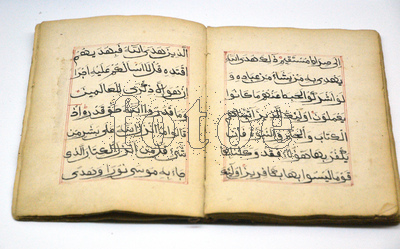 الى صراط مستقيم ذلك هدى الله
يهدي به من يشاء من عباده و
لو اشركوا لحبط عنهم ما كانوا
يعملون اولئك الذين اتيناهم
الكتاب والحكم والنبوة فان
يكفر بها هولاء فقد وكلنا بها
قوما ليسوا بها بكافرين اولئك
الذين هدى الله فبهديهم
اقتده قل لا اسالكم عليه اجرا
ان هو الا ذكرى للعالمين
وما قدروا الله حق قدره اذ
قالوا ما انزل الله على بشر من
شيء قل من انزل الكتاب الذي
جاء به موسى نورا وهدى